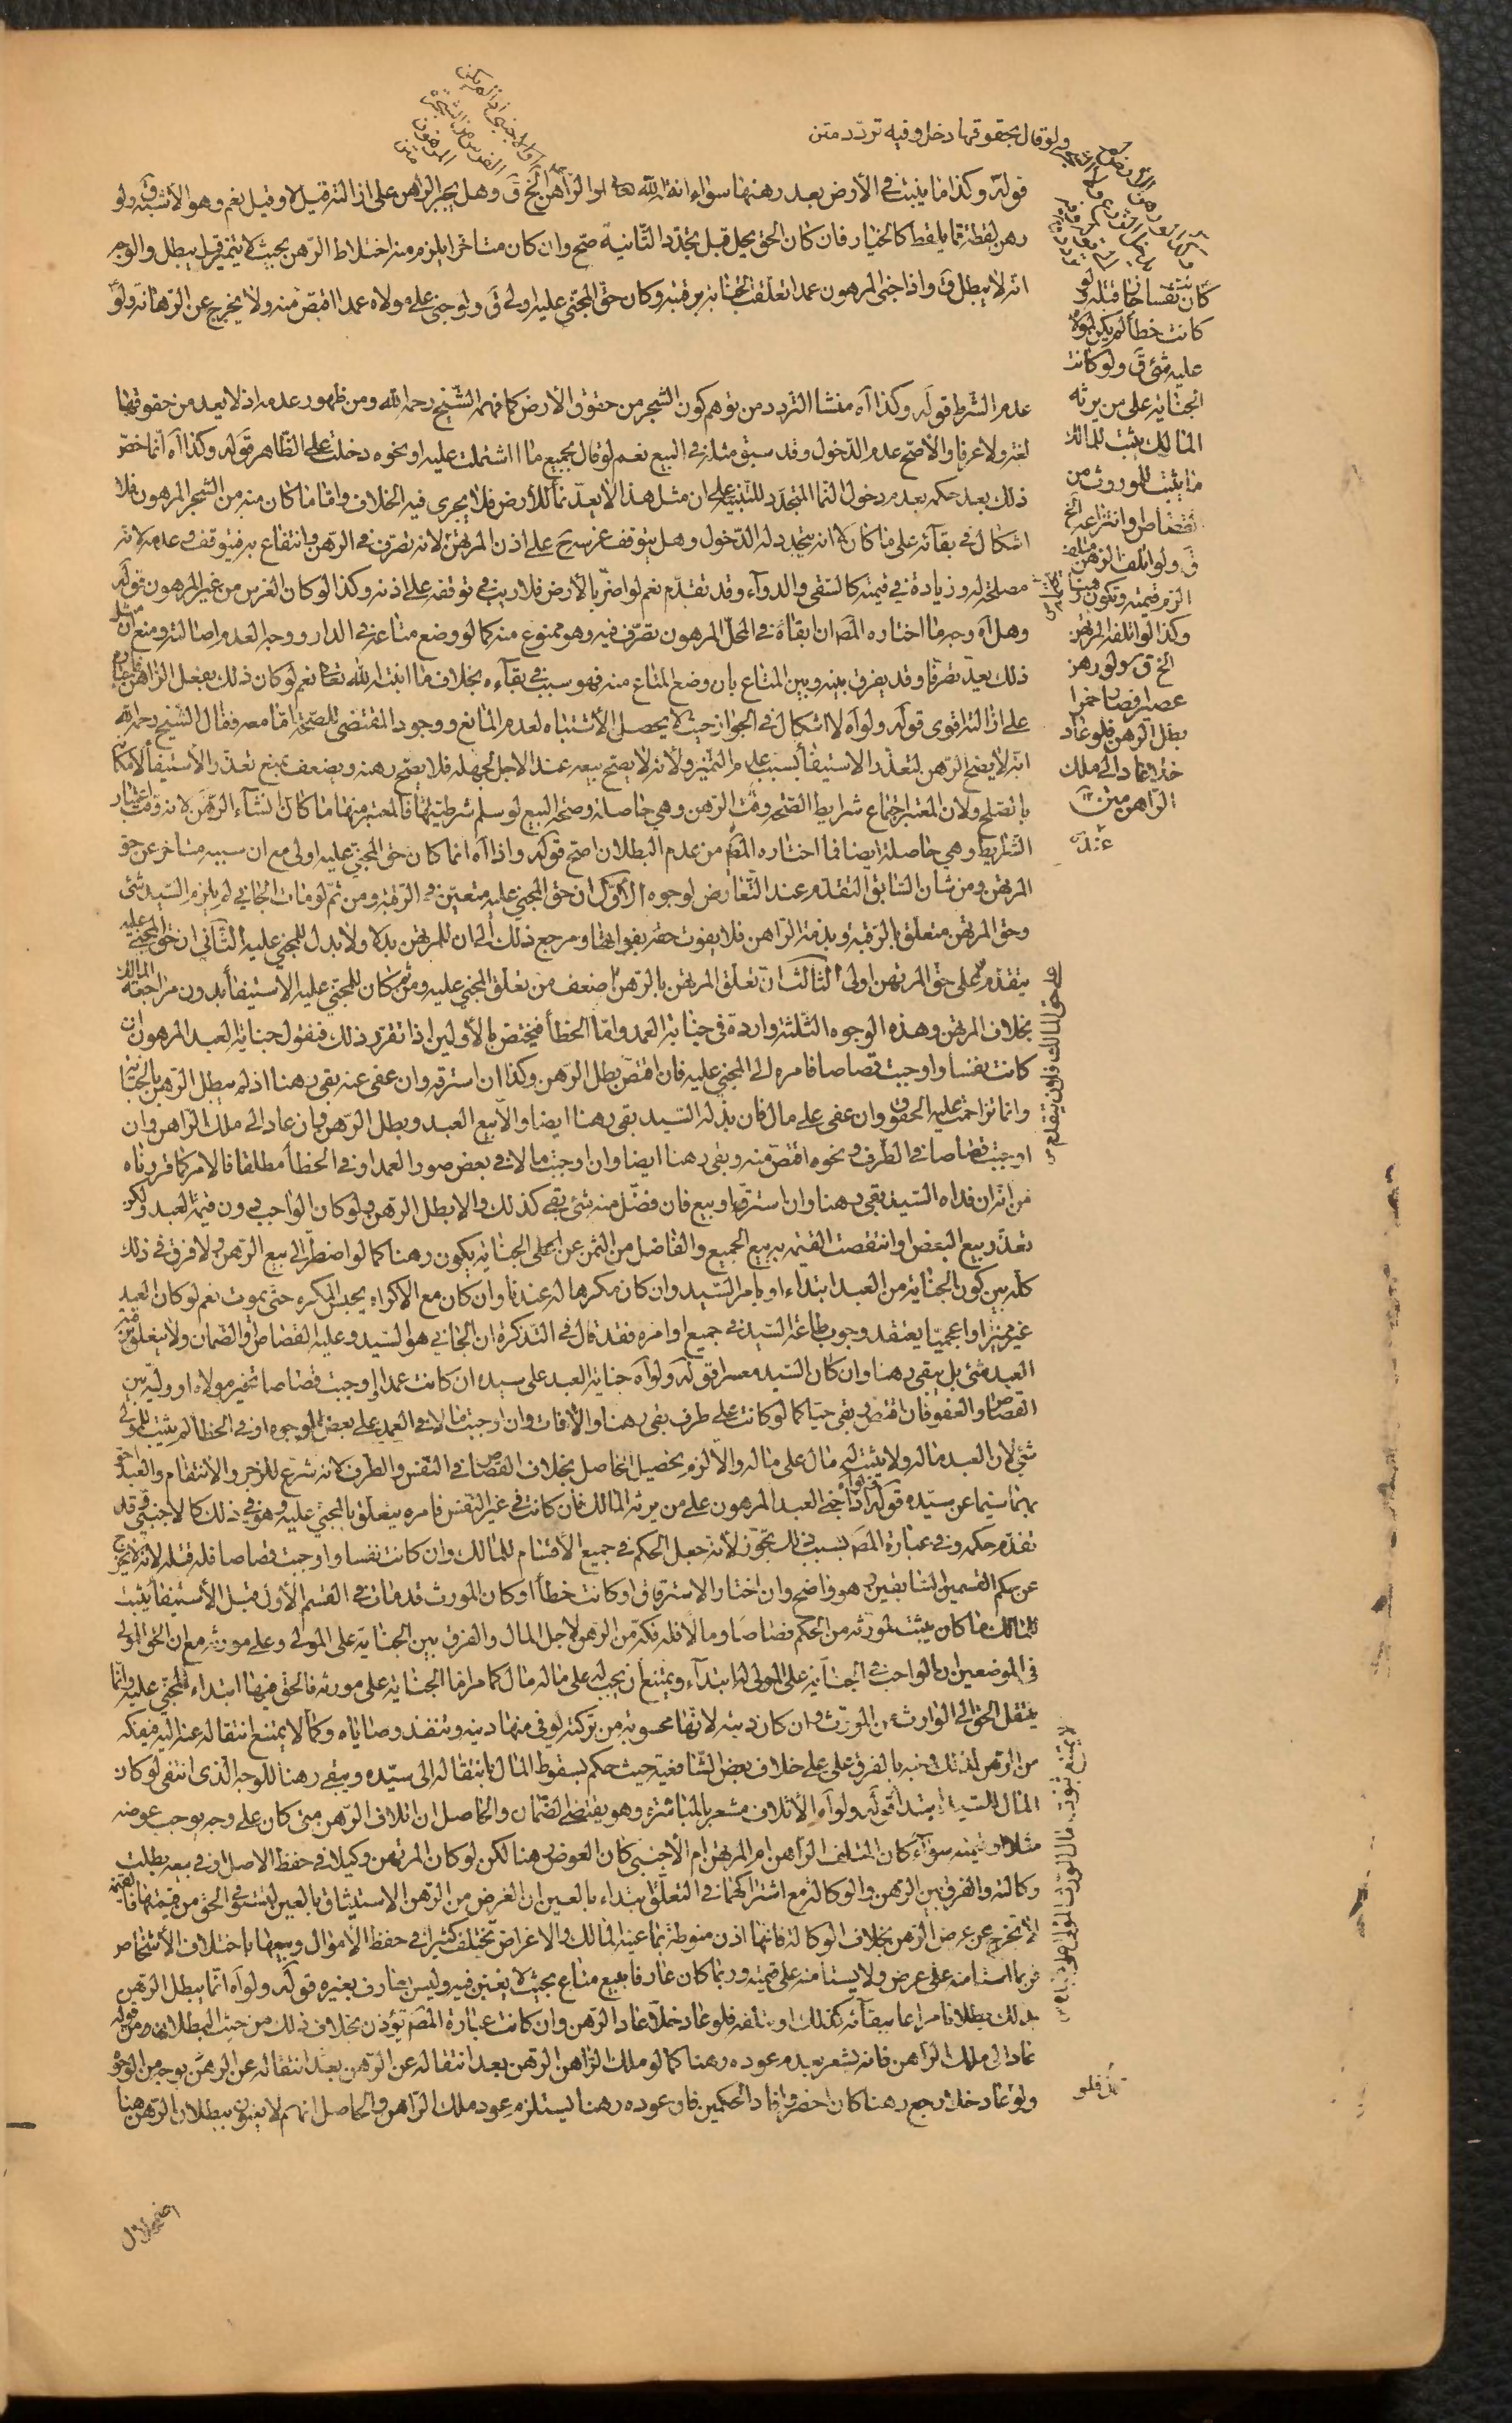 ولو قال بحقوقها دخل وفيه تردد متن
قوله وكذا ما ينبت في الأرض بعد رهنها سواء انبته الله تعالى او الراهن الخ ق وهل يجبر الراهن على ازالته قيل لا وقيل نعم وهو الأشبه ق ولو
رهن لقطة مما يلقط كالخيار فان كان الحق يحل قبل تجدد الثانية صح وان كان متأخرا يلزم منه اختلاط الرهن بحيث لا يتميز قيل يبطل والوجه
انه لا يبطل ق واذا جنى المرهون عمدا تعلقت الجناية برقبته وكان حق المجني عليه اولى ق ولو جنى على مولاه عمدا اقتص منه ولا يخرج عن الرهانة ولو
كانت نفسا جاز قتله ولو
كانت خطأ لم يكن لمولاه
عليه شئ ق ولو كانت
الجناية على من يرثه
المالك يثبت للمالك
ما يثبت للموروث من
القصاص وانتزاعه الخ
ق ولو اتلف الرهن متلف
الزم قيمته وتكون رهنا
وكذا لو اتلفه المرتهن
الخ ق ولو رهن
عصيرا فصار خمرا
بطل الرهن فلو عاد
خلا عاد الى ملك
الراهن متن
عدم الشرط قوله وكذا آه منشأ التردد من توهم كون الشجر من حقوق الأرض كما فهمه الشيخ رحمه الله ومن ظهور عدمه اذ لا يعد من حقوقها
لغة ولا عرفا والأصح عدم الدخول وقد سبق مثله في البيع نعم لو قال بجميع ما اشتملت عليه او نحوه دخلت على الظاهر قوله وكذا آه انما خص
ذلك بعد حكمه بعدم دخول النما المتجدد للتنبيه على ان مثل هذا لا يعد نمأ للأرض فلا يجري فيه الخلاف واما ما كان منه من الشجر المرهون فلا
اشكال في بقائه على ما كان لا انه يتجدد له الدخول وهل يتوقف غرسه ح على اذن المرتهن لانه تصرف في الرهن وانتفاع به فيتوقف او عدمه لانه
مصلحة له وزيادة في قيمته كالسقي والدوآء وقد تقدم نعم لو اضر بالأرض فلا ريب في توقفه على اذنه وكذا لو كان الغرس من غير المرهون قوله
وهل آه وجه ما اختاره المصه ان ابقاءه في المحل المرهون تصرف فيه وهو ممنوع منه كما لو وضع متاعه في الدار ووجه العدم اصالته ومنع ان مثل
ذلك يعد تصرفا وقد يفرق بينه وبين المتاع بان وضع المتاع منه فهو سبب في بقآءه بخلاف ما انبته الله تعالى نعم لو كان ذلك بفعل الراهن
على ازالته اقوى قوله ولو آه لا اشكال في الجواز حيث لا يحصل الأشتباه لعدم المانع ووجود المقتضي للصحة اما معه فقال الشيخ رحمه الله
انه لا يصح الرهن لتعذر الاستيفأ بسبب عدم التميز ولانه لا يصح بيعه عند الاجل لجهله فلا يصح رهنه ويضعف بمنع تعذر الأستيفأ لامكانه
بالصلح ولان المعتبر اجتماع شرايط الصحة وقت الرهن وهي حاصلة وصحة البيع لو سلم شرطيتها فالمعتبر منها ما كان انشآء الرهن لانه وقت اعتبار
الشرايط وهي حاصلة ايضا فما اختاره المصه من عدم البطلان اصح قوله واذا آه انما كان حق المجني عليه اولى مع ان سببه متأخر عن حق
المرتهن ومن شان السابق التقدم عند التعارض لوجوه الأول ان حق المجني عليه متعين في الرقبة ومن ثم لو مات الجاني لم يلزم السيد شئ
وحق المرتهن متعلق بالرقبة وبذمة الراهن فلا يفوت حقه بفواتها ومرجع ذلك الى ان للمرتهن بدلا ولا بدل للمجني عليه الثاني ان حق المجني عليه
يتقدم على حق المرتهن اولى الثالث ان تعلق المرتهن بالرهن اضعف من تعلق المجني عليه ومن ثم كان للمجني عليه الاستيفأ بدون مراجعة المالك
على حق المالك فلان يتقدم
بخلاف المرتهن وهذه الوجوه الثلثة واردة في جناية العمد واما الخطأ فيختص بالأولين اذا تقرر ذلك فنقول جناية العبد المرهون ان
كانت نفسا واوجبت قصاصا فامره الى المجني عليه فان اقتص بطل الرهن وكذا ان استرقه وان عفى عنه بقي رهنا اذ لم يبطل الرهن بالجناية
وانما تزاحمت عليه الحقوق وان عفى على مال فان بذله السيد بقي رهنا ايضا والا بيع العبد وبطل الرهن وان عاد الى ملك الراهن وان
اوجبت قصاصا في الطرف ونحوه اقتص منه وبقي رهنا ايضا وان اوجبت مالا في بعض صور العمد او في الخطأ مطلقا فالامر كما قررناه
من انه ان فداه السيد بقي رهنا وان استرق او بيع فان فضل منه شئ بقي كذلك والا بطل الرهن ولو كان الواجب دون قيمة العبد ولكن
تعذر بيع البعض او انتقصت القيمة به بيع الجميع والفاضل من الثمن عن الجناية يكون رهنا كما لو اضطر الى بيع الرهن ولا فرق في ذلك
كله بين كون الجناية من العبد ابتداء او بامر السيد وان كان مكرها له عندنا وان كان مع الاكراه يحبس المكره حتى يموت نعم لو كان العبد
غير مميز او اعجميا يعتقد وجوب طاعة السيد في جميع اوامره فقد قال في التذكرة ان الجاني هو السيد وعليه القصاص والضمان ولا يتعلق برقبة
العبد شئ بل يبقى رهنا وان كان السيد معسرا قوله ولو آه جناية العبد على سيده ان كانت عمدا واوجبت قصاصا تخير مولاه او وليه بين
القصاص والعفو فان اقتص وبقي حيا كما لو كانت على طرف بقي رهنا والا فات وان اوجبت مالا في العمد على بعض الوجوه او في الخطأ لم يثبت للمولى
شئ لان العبد ماله ولا يثبت له مال على ماله والا لزم تحصيل الحاصل بخلاف القصاص في النفس والطرف لانه شرع للزجر والانتقام والعبد احق
بهما سيما عن سيده قوله ولو آه اذا جنى العبد المرهون على من يرثه المالك فان كانت في غير النفس فامره يتعلق بالمجني عليه وهو في ذلك كالاجنبي وقد
تقدم حكمه وفي عبارة المصه بسبب ذلك تجوز لأنه جعل الحكم في جميع الأقسام للمالك وان كانت نفسا واوجبت قصاصا فله قتله لانه لا يخرج
عن حكم القسمين السابقين وهو واضح وان اختار الاسترقاق او كانت خطأ او كان المورث قد مات في القسم الأول قبل الأستيفأ يثبت
للمالك ما كان يثبت لمورثه من الحكم قصاصا ومالا فله فكه من الرهن لاجل المال والفرق بين الجناية على المولى وعلى مورثه مع ان الحق للمولى
في الموضعين ان الواجب في الجناية على المولى له ابتدآء ويمتنع ان يجب له على ماله مال كما مر اما الجناية على مورثه فالحق فيها ابتداء للمجني عليه وانما
ينتقل الحق الى الوارث من المورث وان كان دية لانها محسوبة من تركته يوفى منها دينه وتنفذ وصاياه وكما لا يمتنع انتقاله عنه اليه فيفكه
لا يمتنع ثبوت مال لمورث المولى على عبده
من الرهن لذلك ونبه بالفرق على خلاف بعض الشافعية حيث حكم بسقوط المال بانتقاله الى سيده ويبقى رهنا للوجه الذي انتفى لو كان
المال للسيد ابتدأ قوله ولو آه الأتلاف مشعر بالمباشرة وهو يقتضي الضمان والحاصل ان اتلاف الرهن متى كان على وجه يوجب عوضه
مثلا او قيمة سوآء كان المتلف الراهن ام المرتهن ام الأجنبي كان العوض رهنا لكن لو كان المرتهن وكيلا في حفظ الاصل او في بيعه بطلت
وكالته والفرق بين الرهن والوكالة مع اشتراكهما في التعلق ابتداء بالعين ان الغرض من الرهن الاستيثاق بالعين ليستوفى الحق من قيمتها فالقيمة
لا تخرج عن غرض الرهن بخلاف الوكالة فانها اذن منوطة بما عينه المالك والاغراض تختلف كثيرا في حفظ الاموال وبيعها باختلاف الأشخاص
فربما استأمنه على عرض ولا يستأمنه على قيمته وربما كان عارفا ببيع متاع بحيث لا يغبن فيه وليس عارف بغيره قوله ولو آه انما يبطل الرهن
بذلك بطلانا مراعا ببقآئه كذلك او تلفه فلو عاد خلا عاد الرهن وان كانت عبارة المصه تؤذن بخلاف ذلك من حيث البطلان ومن قوله
عاد الى ملك الراهن فانه يشعر بعدم عوده رهنا كما لو ملك الراهن الرهن بعد انتقاله عن الرهن بوجه من الوجوه
ولو عاد خلا رجع رهنا كان اخصر وافاد الحكمين فان عوده رهنا يستلزم عود ملك الراهن والحاصل انهم لا يعنون ببطلان الرهن هنا
اضمحلال